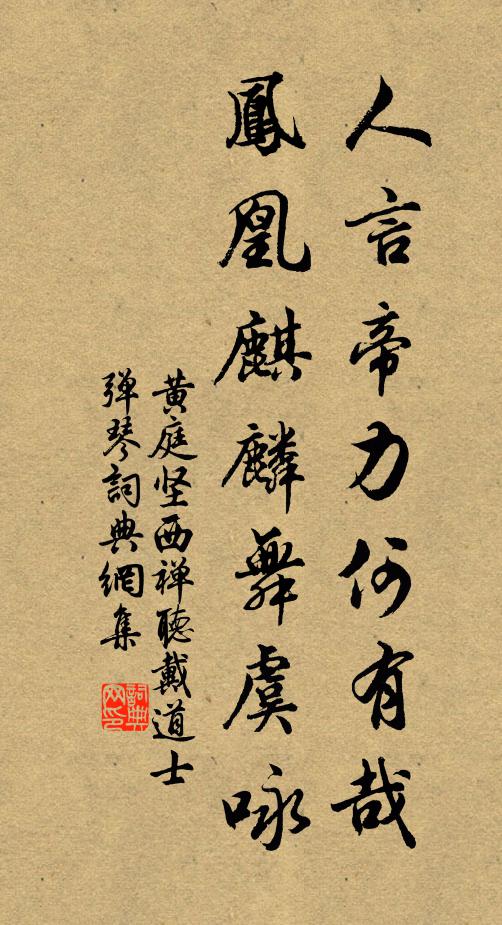 人言帝力何有哉
鳳凰麒麟舞虞咏
黄庭坚西禅聽戴道士
弹琴詞典網集
詞典网印